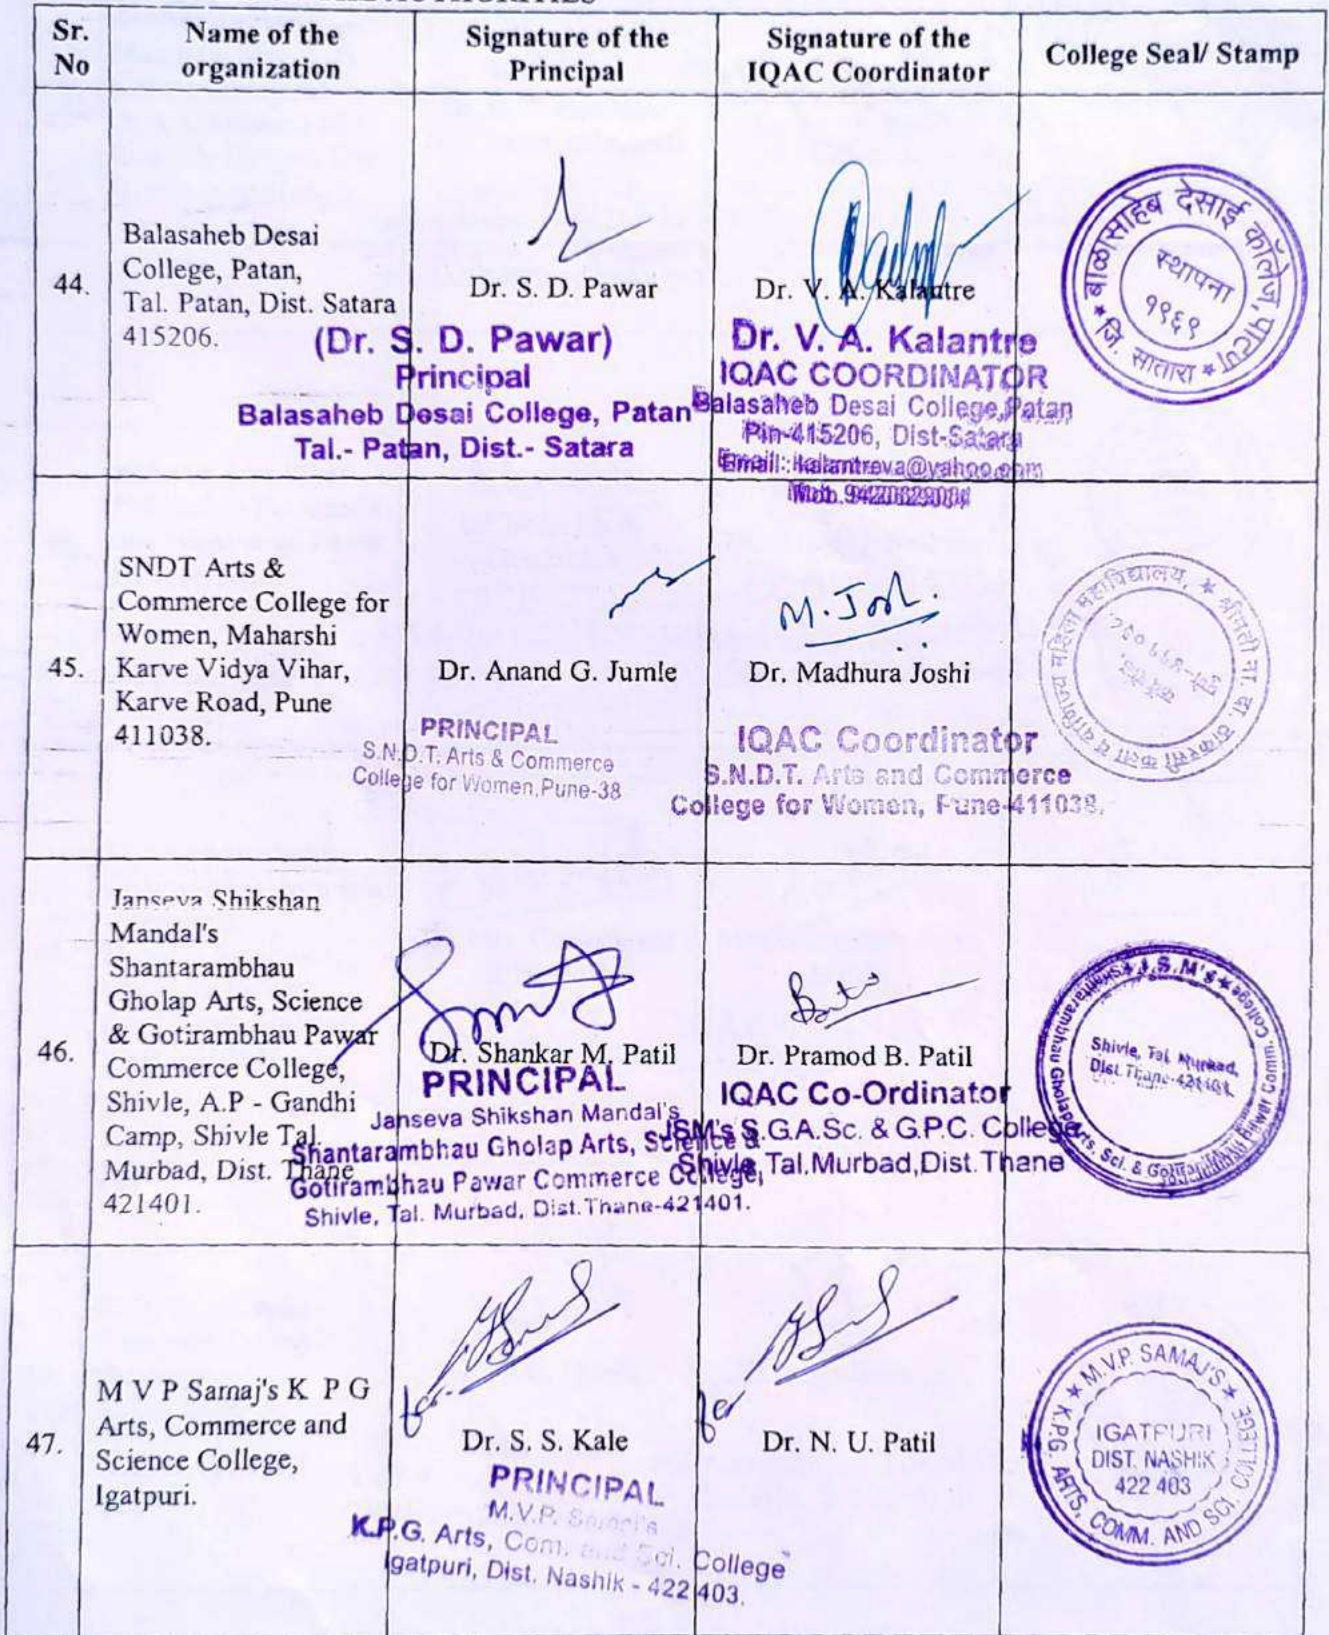 Sr. No
Name of the organization
Signature of the Principal
Signature of the IQAC Coordinator
College Seal/ Stamp
44.
Balasaheb Desai
College, Patan,
Tal. Patan, Dist. Satara
415206.
Dr. S. D. Pawar
(Dr. S. D. Pawar)
Principal
Balasaheb Desai College, Patan
Tal.- Patan, Dist.- Satara
Dr. V. A. Kalantre
Dr. V. A. Kalantre
IQAC COORDINATOR
Balasaheb Desai College, Patan
Pin-415206, Dist-Satara
Email: kalantreva@yahoo.com
Mob.
बाळासाहेब देसाई कॉलेज, पाटण
* जि. सातारा *
स्थापना
१९६९
45.
SNDT Arts &
Commerce College for
Women, Maharshi
Karve Vidya Vihar,
Karve Road, Pune
411038.
Dr. Anand G. Jumle
PRINCIPAL
S.N.D.T. Arts & Commerce
College for Women, Pune-38
M. Joshi.
Dr. Madhura Joshi
IQAC Coordinator
S.N.D.T. Arts and Commerce
College for Women, Pune-411038.
श्रीमती ना. दा. ठाकरसी कला व वाणिज्य महिला महाविद्यालय,
46.
Janseva Shikshan
Mandal's
Shantarambhau
Gholap Arts, Science
& Gotirambhau Pawar
Commerce College,
Shivle, A.P - Gandhi
Camp, Shivle Tal.
Murbad, Dist. Thane
421401.
Dr. Shankar M. Patil
PRINCIPAL
Janseva Shikshan Mandal's
Shantarambhau Gholap Arts, Science &
Gotirambhau Pawar Commerce College,
Shivle, Tal. Murbad, Dist. Thane-421401.
Dr. Pramod B. Patil
IQAC Co-Ordinator
JSM's S.G.A.Sc. & G.P.C. College
Shivle, Tal.Murbad,Dist.Thane
* J.S.M's *
Shantarambhau Gholap Arts, Sci. & Gotirambhau Pawar Comm. College
Shivle, Tal. Murbad,
Dist. Thane-421401.
47.
M V P Samaj's K P G
Arts, Commerce and
Science College,
Igatpuri.
for
Dr. S. S. Kale
PRINCIPAL
M.V.P. Samaj's
K.P.G. Arts, Com. and Sci. College
Igatpuri, Dist. Nashik - 422 403.
for
Dr. N. U. Patil
* M.V.P. SAMAJ'S *
K.P.G. ARTS, COMM. AND SCI. COLLEGE
IGATPURI
DIST. NASHIK
422 403